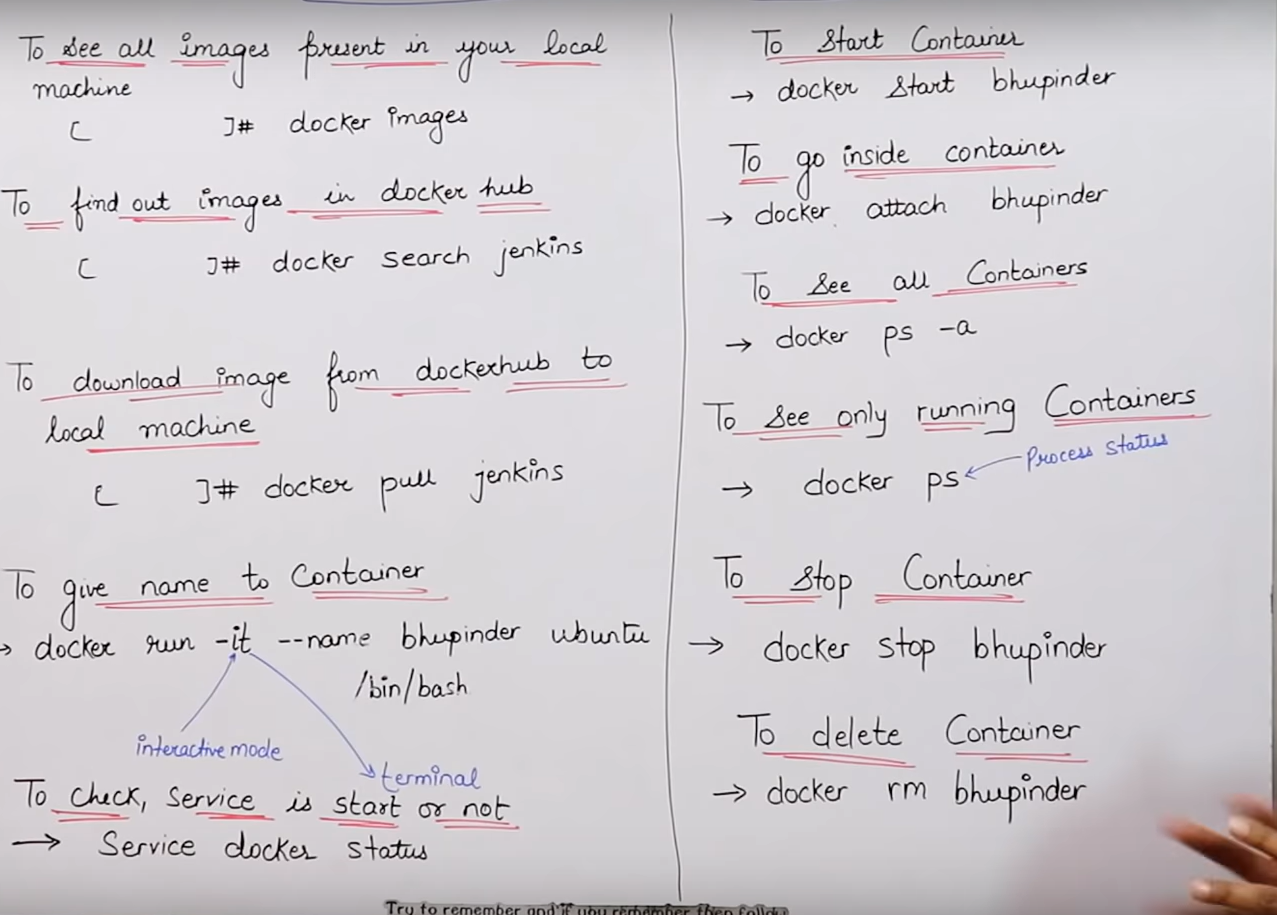 To see all images present in your local
machine
[ ]# docker images
To find out images in docker hub
[ ]# docker search jenkins
To download image from dockerhub to
local machine
[ ]# docker pull jenkins
To give name to Container
→ docker run -it --name bhupinder ubuntu
/bin/bash
interactive mode
terminal
To check, service is start or not
→ Service docker status
To Start Container
→ docker start bhupinder
To go inside container
→ docker attach bhupinder
To see all Containers
→ docker ps -a
To see only running Containers
→ docker ps
Process status
To stop Container
→ docker stop bhupinder
To delete Container
→ docker rm bhupinder
Try to remember and if you remember then follow